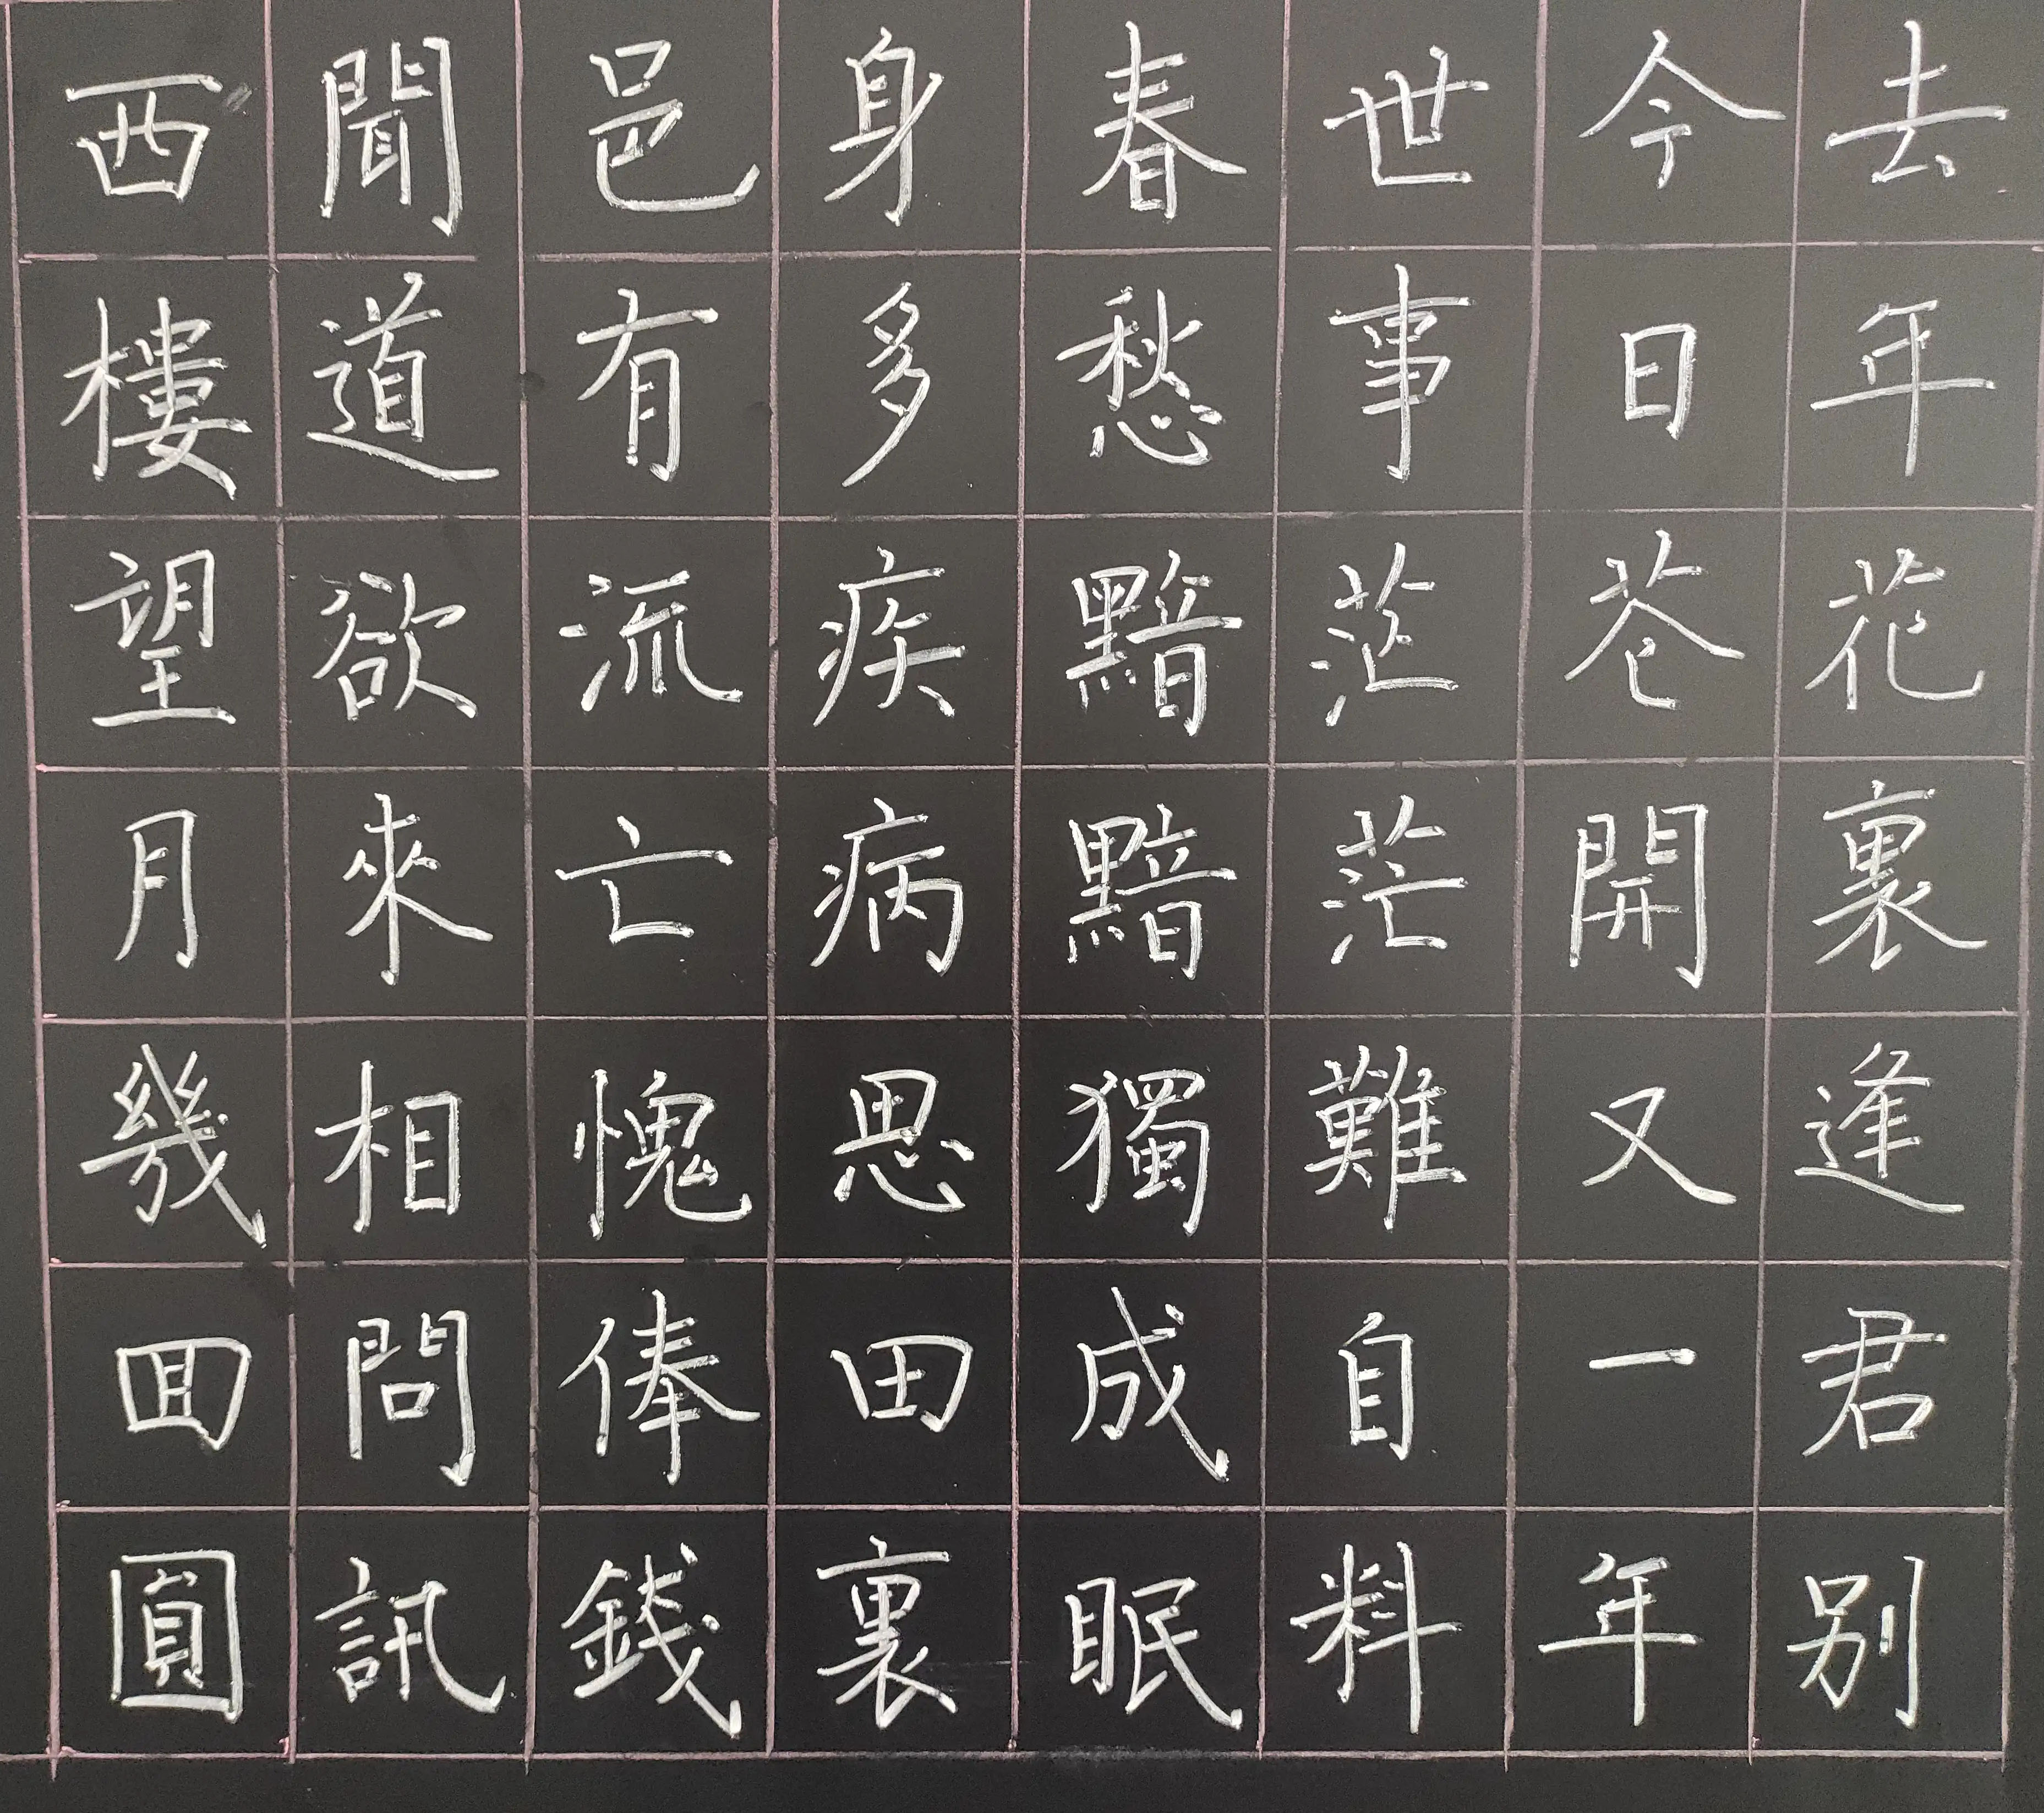 去年花裏逢君别
今日苍開又一年
世事茫茫難自料
春愁黯黯獨成眠
身多疾病思田裏
邑有流亡愧俸錢
聞道欲來相問訊
西樓望月幾囬圓